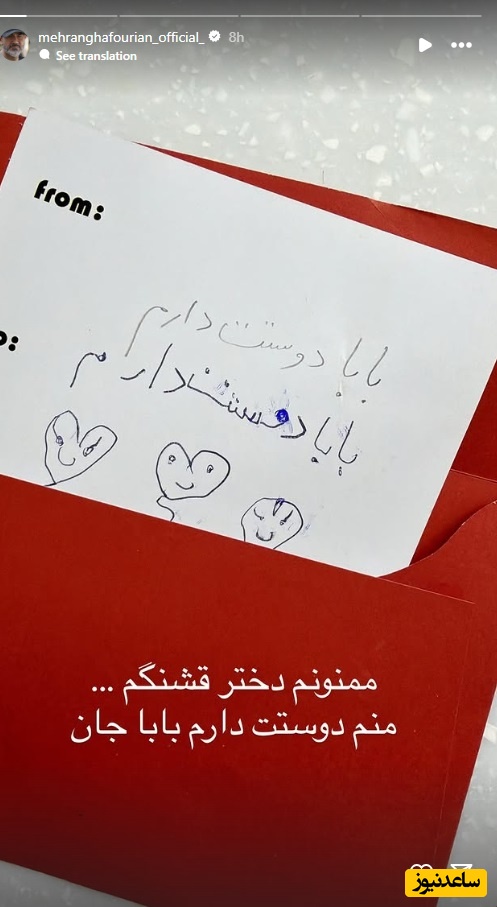 mehranghafourian_official_ 8h
See translation
from:
o:
بابا دوستت دارم
بابا دوستت دارم
ممنونم دختر قشنگم ...
منم دوستت دارم بابا جان
ساعدنیوز